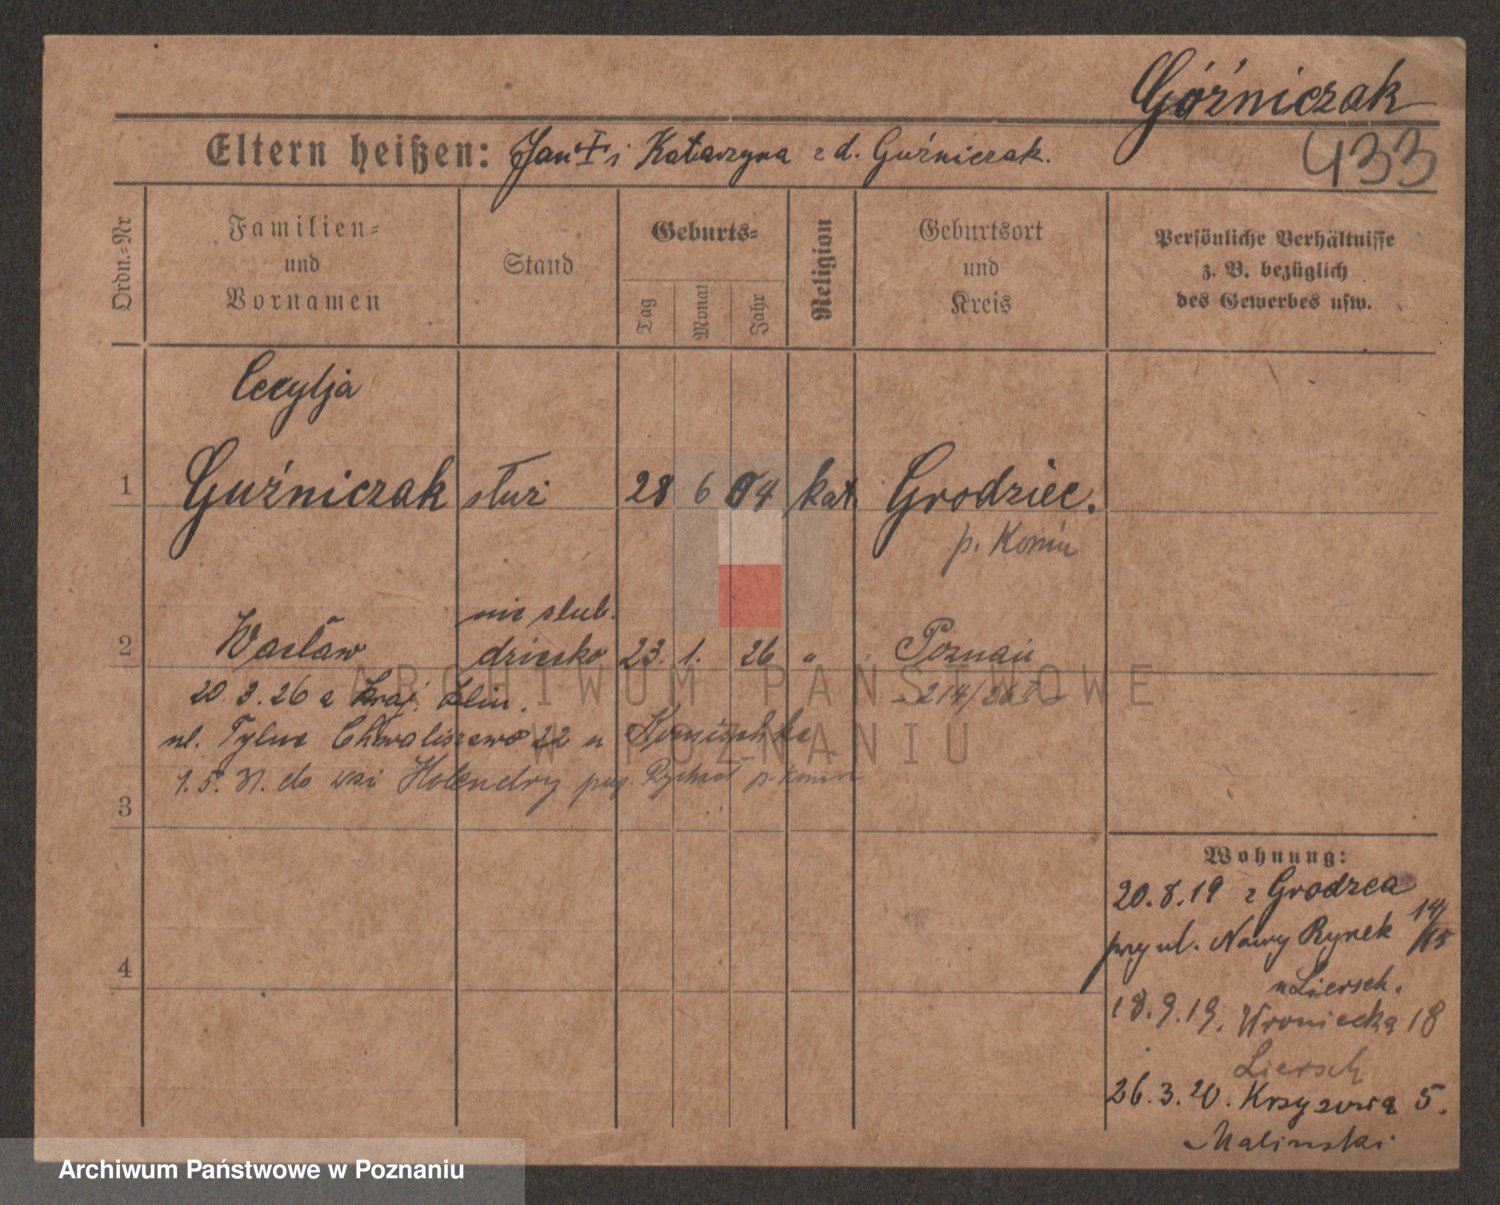 Góźniczak
433
Eltern heißen: Jan † i Katarzyna z d. Guźniczak.
Ordn.-Nr
Familien- und Vornamen
Stand
Geburts-
Tag
Monat
Jahr
Religion
Geburtsort und Kreis
Persönliche Verhältnisse
z. B. bezüglich
des Gewerbes usw.
Cecylja
1 Guźniczak służ 28 6 04 kat. Grodziec.
p. Konin
nie ślub.
2 Wacław dziecko 23. 1. 26 " Poznań
20.3.26 z Kraj.
214/26
ul. Tylne Chwaliszewo 22 u
3 1.5.31. do wsi Holendry Rychwał p. Konin
4
Wohnung:
20.8.19 z Grodzca
przy ul. Nowy Rynek 14/15
u Liersch.
18.9.19. Wroniecka 18
Liersch
26.3.20. Krzyżowa 5.
Malinski
ARCHIWUM PAŃSTWOWE
W POZNANIU
Archiwum Państwowe w Poznaniu